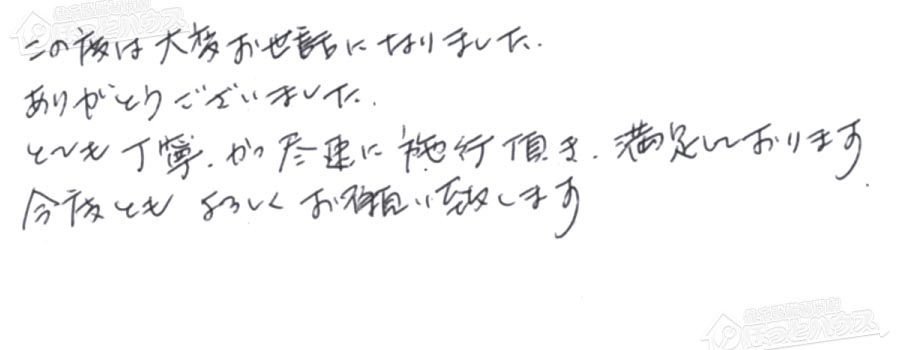 この度は大変お世話になりました.
ありがとうございました.
とても丁寧.かつ迅速に施行頂き.満足しております.
今後とも よろしくお願い致します
ほっとハウス
ほっとハウス